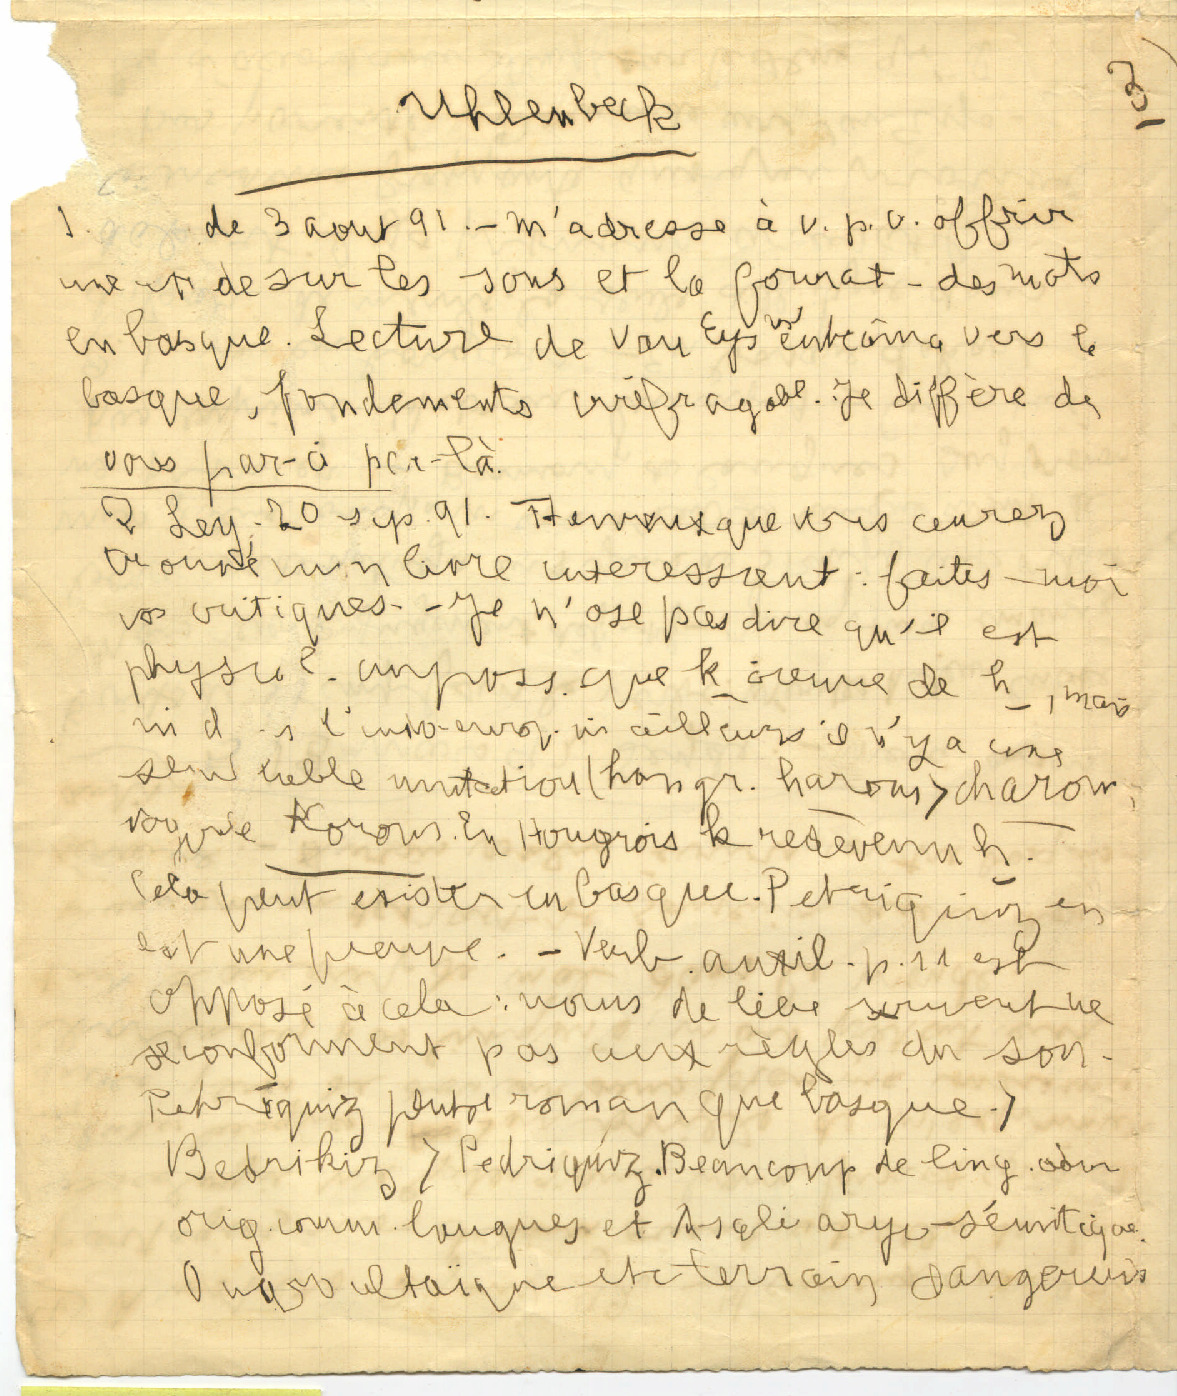 103)
Uhlenbeck
1. de 3 aout 91. – M'adresse à v. p. v. offrir
une etude sur les sons et la format - des mots
en basque. Lecture de Van Eys m' entraina vers le
basque, fondements irréfragabl. Je diffère de
vous par-ci par-là.
2 Ley. 20 sep. 91. Heureux que vous aurez
trouvé mon livre interessant : faites - moi
vos critiques - - Je n'ose pas dire qu'il est
physiol. imposs. que k vienne de h, mais
ni ds l'indo-europ. ni ailleurs il n'y a une
semblable mutation (hongr. harom > charom,
vogoule Korom. En Hongrois k redevenu h.
Cela peut exister en basque. Petriquiz en
est une preuve. – Verb. auxil. p. 11 est
opposé à cela : noms de lieu souvent ne
se conforment pas aux règles du son.
Petriquiz plutot roman que basque. >
Bedrikiz > Pedriquiz. Beaucoup de ling.
orig. comm. langues et Ascoli aryo-sémitique.
Ougro altaïque etc terrain dangereux